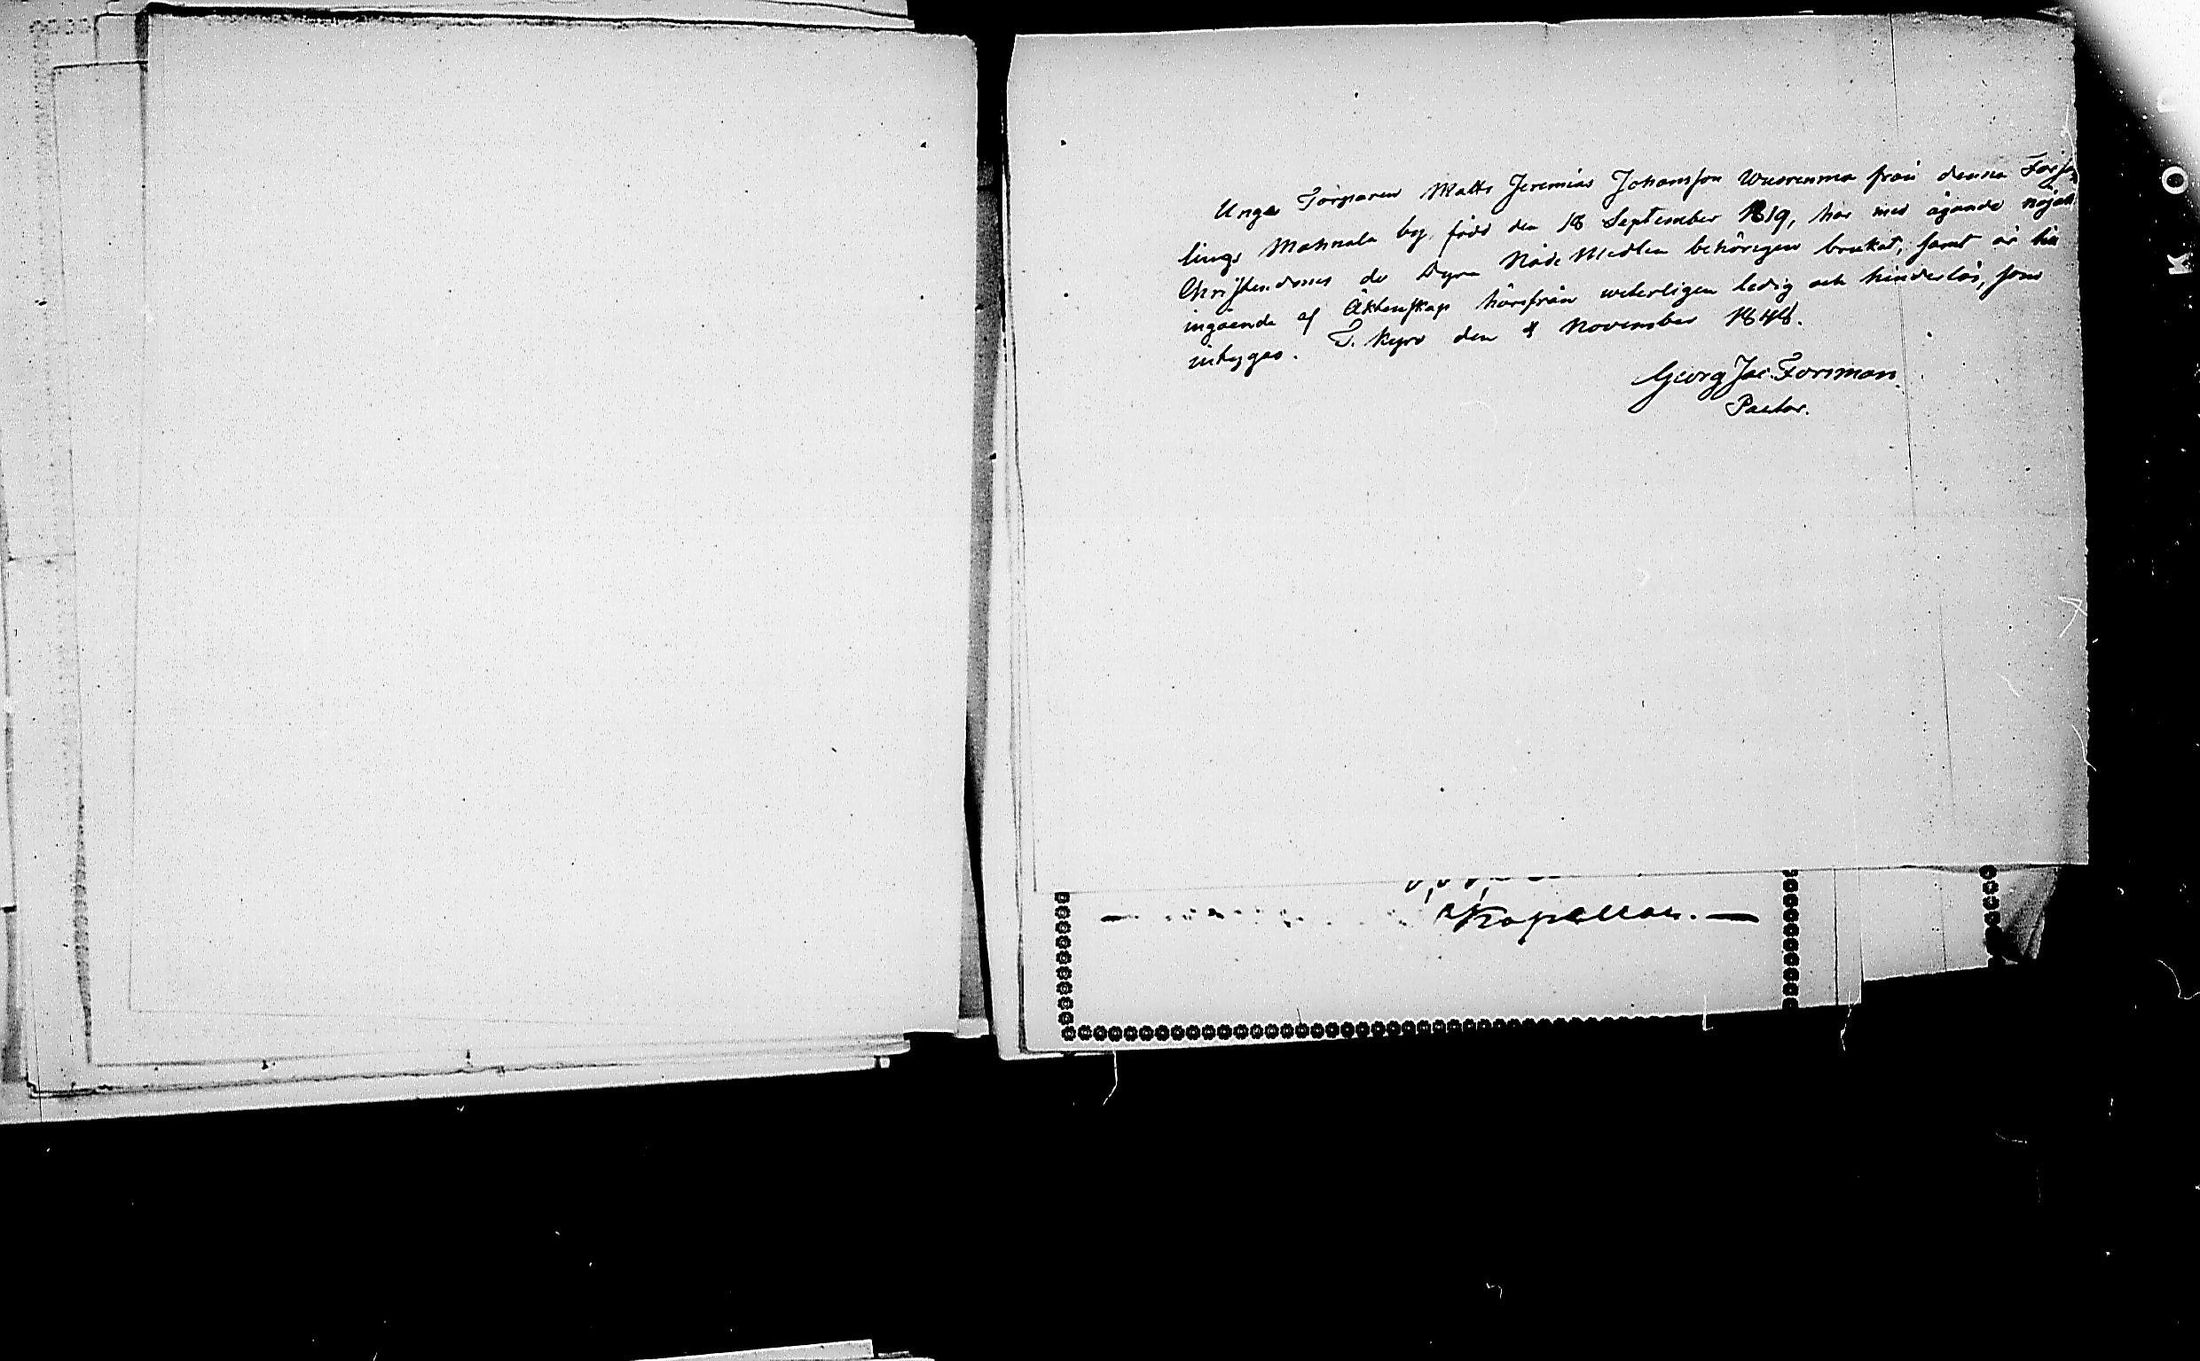 Unge Torparen Matts Jeremias Johansson Wuorenmaa från denna Försam
lings Mahnala by, född den 18 September 1819, har med ägande nöjak
Christendoms de Dyra Nåde Medlen behörigen brukat, samt är till
ingående af Äktenskap härifrån veterligen ledig och hinderlös, som
intygas. T. Kyro den 8 November 1848.
Georg Jac. Forsman.
Pastor.
Kapellan.
K O